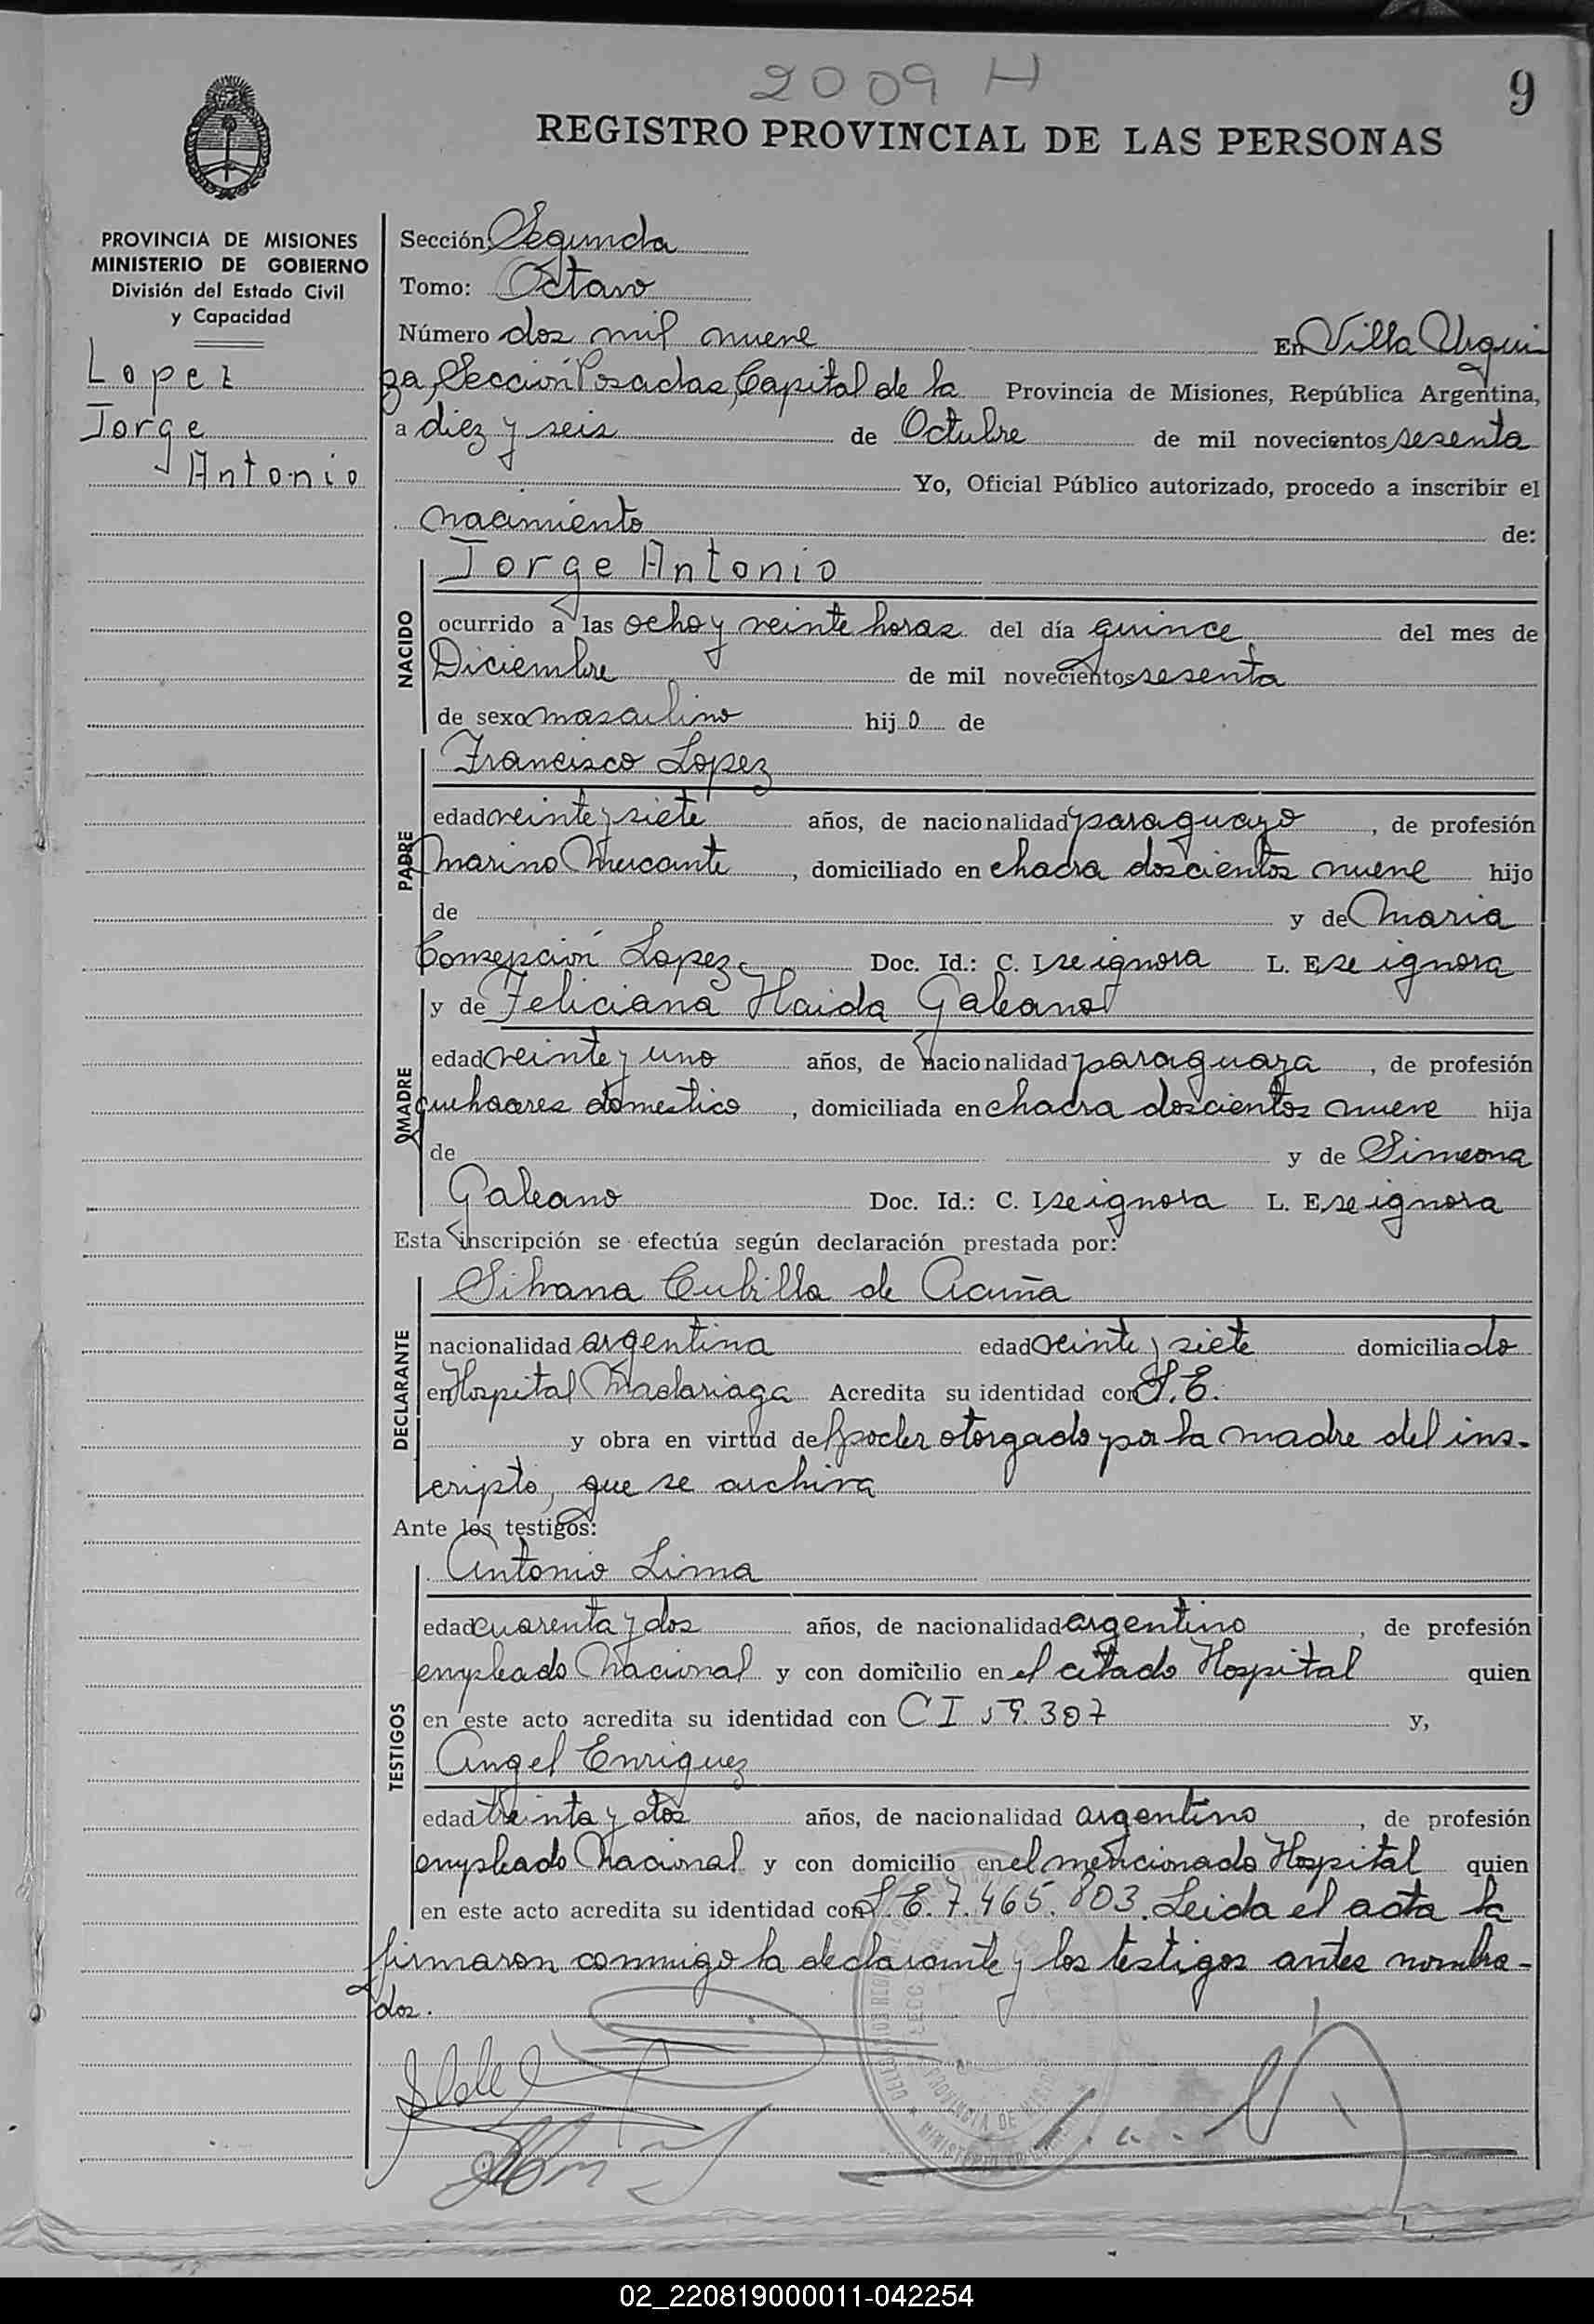 2009 H
9
REGISTRO PROVINCIAL DE LAS PERSONAS
PROVINCIA DE MISIONES
MINISTERIO DE GOBIERNO
División del Estado Civil
y Capacidad
Lopez
Jorge
Antonio
Sección: Segunda
Tomo: Octavo
Número dos mil nueve En Villa Urqui
za, Sección Posadas, Capital de la Provincia de Misiones, República Argentina,
a diez y seis de Octubre de mil novecientos sesenta
Yo, Oficial Público autorizado, procedo a inscribir el
nacimiento de:
NACIDO
Jorge Antonio
ocurrido a las ocho y veinte horas del día quince del mes de
Diciembre de mil novecientos sesenta
de sexo masculino hijo de
PADRE
Francisco Lopez
edad veinte y siete años, de nacionalidad paraguayo, de profesión
Marino Mercante, domiciliado en chacra doscientos nueve hijo
de y de Maria
Consepción Lopez Doc. Id.: C. I. se ignora L. E. se ignora
MADRE
y de Feliciana Haida Galeano
edad veinte y uno años, de nacionalidad paraguaya, de profesión
quehaceres domestico, domiciliada en chacra doscientos nueve hija
de y de Simeona
Galeano Doc. Id.: C. I. se ignora L. E. se ignora
Esta inscripción se efectúa según declaración prestada por:
DECLARANTE
Silvana Cubilla de Acuña
nacionalidad argentina edad veinte y siete domiciliado
en Hospital Madariaga Acredita su identidad con
y obra en virtud del poder otorgado por la madre del ins-
cripto, que se archiva
Ante los testigos:
TESTIGOS
Antonio Lima
edad cuarenta y dos años, de nacionalidad argentino, de profesión
empleado Nacional y con domicilio en el citado Hospital quien
en este acto acredita su identidad con CI 59.307 y,
Angel Enriquez
edad treinta y dos años, de nacionalidad argentino, de profesión
empleado Nacional y con domicilio en el mencionado Hospital quien
en este acto acredita su identidad con L. E. 7.465.803. Leida el acta la
firmaron conmigo la declarante y los testigos antes nombra-
dos.
PROVINCIA DE MISIONES
02_220819000011-042254